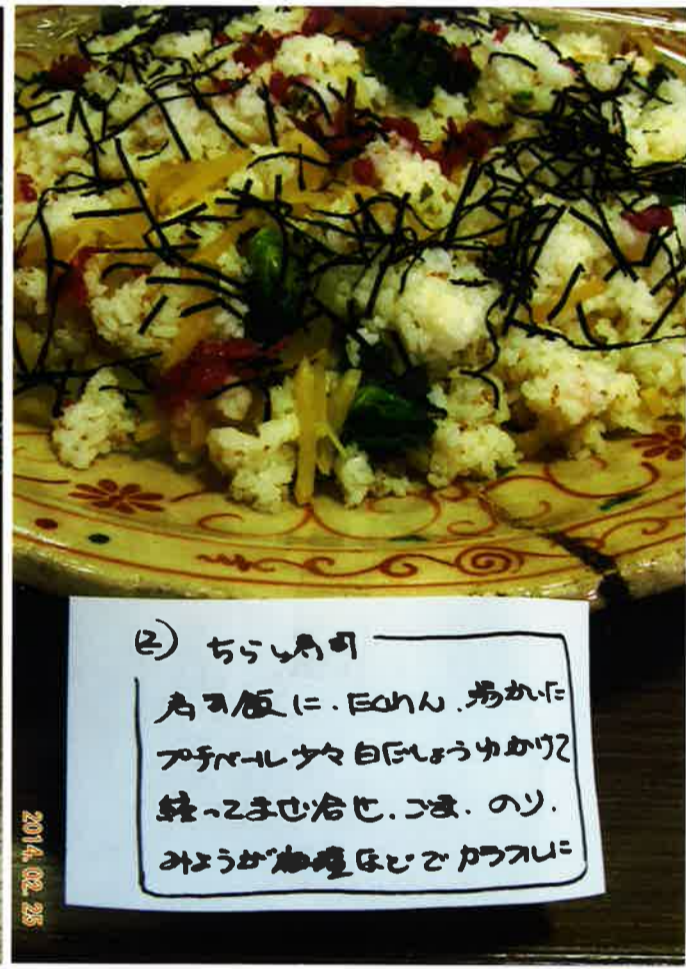 ② ちらし寿司
寿司飯に、たくわん、湯がいた
プチベール少々白だしょうゆかけて
絞ってまぜ合せ、ごま、のり、
みょうが など で カラフルに
2014.02.25